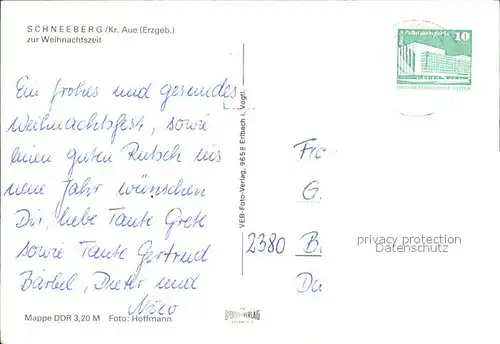 SCHNEEBERG /Kr. Aue (Erzgeb.)
zur Weihnachtszeit
10
Ein frohes und gesundes
Weihnachtsfest, sowie
einen guten Rutsch ins
neue Jahr wünschen
Dir, liebe Tante Grete
sowie Tante Gertrud
Bärbel, Dieter und
Nico
Mappe DDR 3,20 M Foto: Hoffmann
VEB-Foto-Verlag, 9659 Erlbach i. Vogtl.
FOTO-VERLAG
Fr
G.
2380 B
Da
privacy protection
Datenschutz